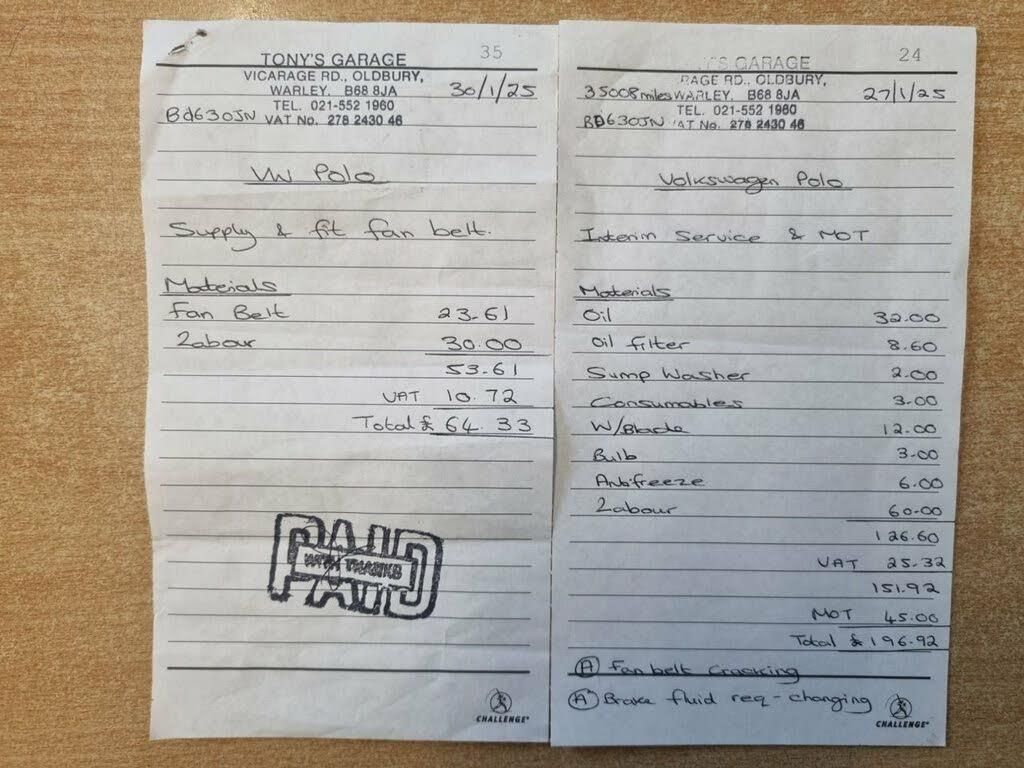 35
TONY'S GARAGE
VICARAGE RD., OLDBURY,
WARLEY. B68 8JA
30/1/25
TEL. 021-552 1960
BD63OJN VAT No. 278 2430 46
VW Polo
Supply & fit fan belt.
Materials
Fan Belt 23-61
Labour 30.00
53.61
VAT 10.72
Total £ 64.33
PAID
WITH THANKS
CHALLENGE
24
GARAGE
RD., OLDBURY,
35008 miles WARLEY. B68 8JA
27/1/25
TEL. 021-552 1960
BD63OJN VAT No. 278 2430 46
Volkswagen Polo
Interim Service & MOT
Materials
Oil 32.00
Oil filter 8.60
Sump Washer 2.00
Consumables 3.00
W/Blade 12.00
Bulb 3.00
Antifreeze 6.00
Labour 60.00
126.60
VAT 25.32
151.92
MOT 45.00
Total £196.92
(A) Fan belt cracking
(A) Brake fluid req - changing
CHALLENGE